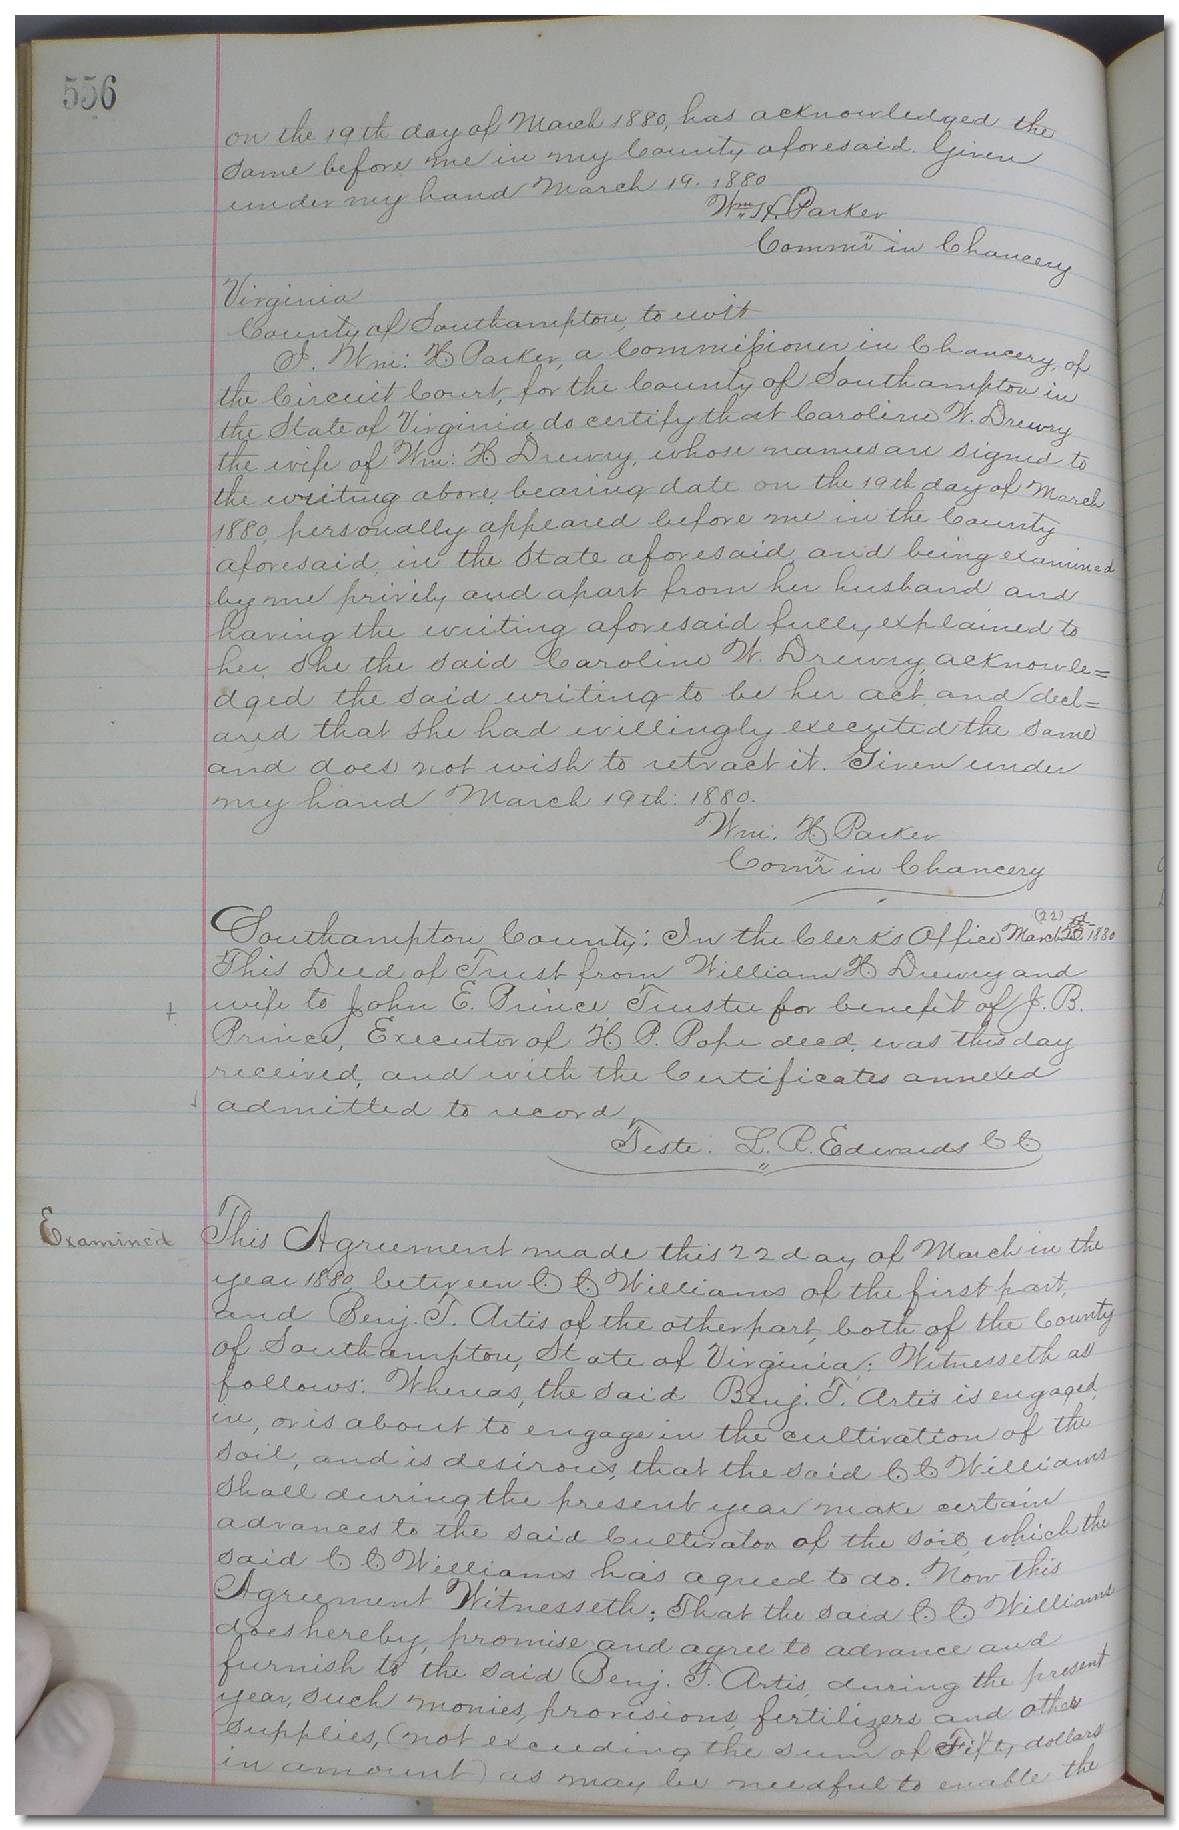 556
on the 19th day of March 1880, has acknowledged the
same before me in my County aforesaid. Given
under my hand March 19. 1880
Wm. H. Parker
Commr in Chancery
Virginia
County of Southampton, to wit
I. Wm: H Parker, a Commissioner in Chancery, of
the Circuit Court, for the County of Southampton in
the State of Virginia, do certify that Caroline W. Drewry
the wife of Wm: H Drewry, whose names are signed to
the writing above, bearing date on the 19th day of March
1880, personally appeared before me in the County
aforesaid, in the State aforesaid, and being examined
by me privily and apart from her husband and
having the writing aforesaid fully explained to
her, she the said Caroline W. Drewry, acknowle=
dged the said writing to be her act, and decl=
ared that she had willingly executed the same
and does not wish to retract it. Given under
my hand March 19th: 1880.
Wm: H Parker
Comr in Chancery
(22)
Southampton County: In the Clerk's Office March 1880
This Deed of Trust from William H Drewry and
wife to John E. Prince, Trustee for benefit of J. B.
Prince, Executor of H P. Pope deed, was this day
received, and with the Certificates annexed
admitted to record,
Teste: L. R. Edwards C C
Examined
This Agreement made this 22 day of March in the
year 1880, between C C Williams of the first part,
and Benj. T. Artis of the other part, both of the County
of Southampton, State of Virginia: Witnesseth as
follows: Whereas, the said Benj. T. Artis is engaged
in, or is about to engage in the cultivation of the
soil, and is desirous, that the said C C Williams
shall during the present year make certain
advances to the said Cultivator of the soil, which the
said C C Williams has agreed to do. Now this
Agreement Witnesseth; That the said C C Williams
does hereby, promise and agree to advance and
furnish to the said Benj. T. Artis, during the present
year, such monies, provisions, fertilizers and other
supplies, (not exceeding the sum of Fifty dollars
in amount) as may be needful to enable the